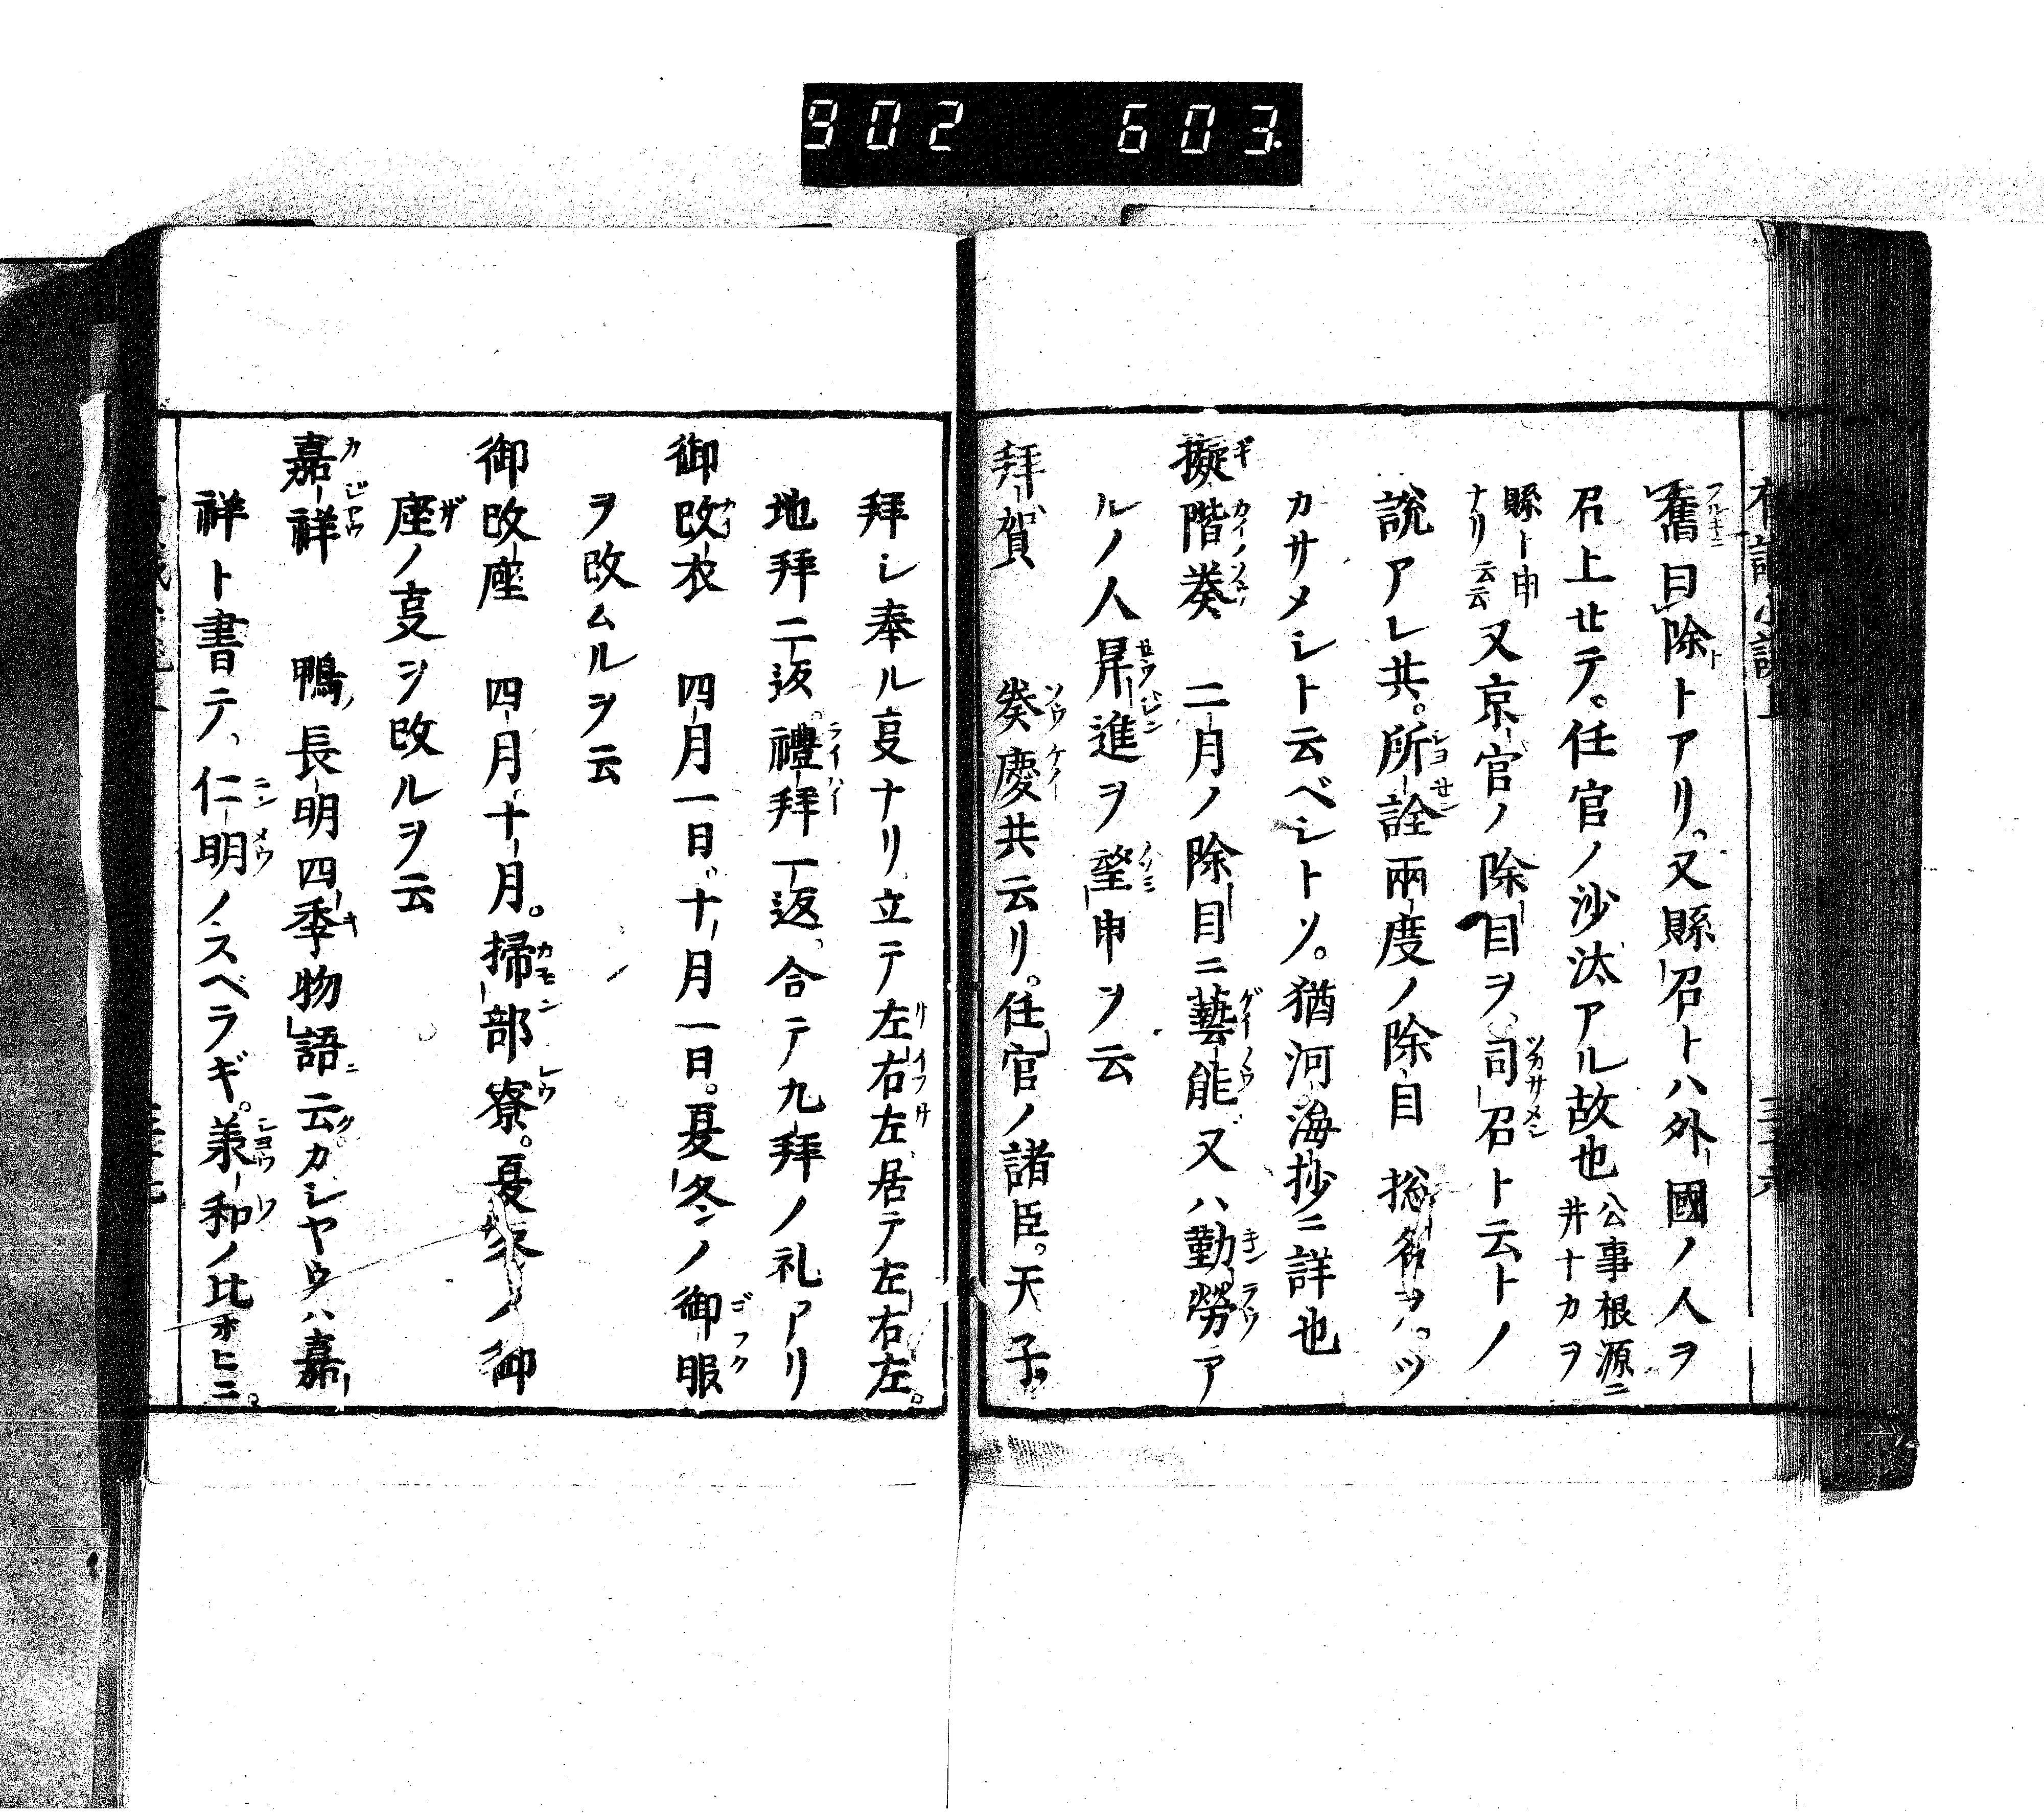 902 603.
舊曰除トアリ。又縣召トハ外國ノ人ヲ
召上セテ。任官ノ沙汰アル故也 公事根源ニ
井ナカヲ
縣ト申
ナリ云云 又京官ノ除目ヲ、司召ト云トノ
説アレ共。所詮兩度ノ除目 惣名ヲ。ツ
カサメシト云ベシトソ。猶河海抄ニ詳也
擬階奏 二月ノ除目ニ藝能又ハ勤勞ア
ルノ人昇進ヲ望申ヲ云
拜賀 奏慶共云リ。任官ノ諸臣。天子
拜シ奉ル㕝ナリ立テ左右左居テ左右左。
地拜二返。禮拜一返、合テ九拜ノ礼アリ
御改衣 四月一日。十月一日。夏冬ノ御服
ヲ改ムルヲ云
御改座 四月十月。掃部寮。夏冬ノ御
座ノ㕝ヲ改ルヲ云
嘉祥 鴨長明四季物語ニ云カシヤウハ嘉
祥ト書テ、仁明ノスベラギ。承和ノ比ホヒニ。